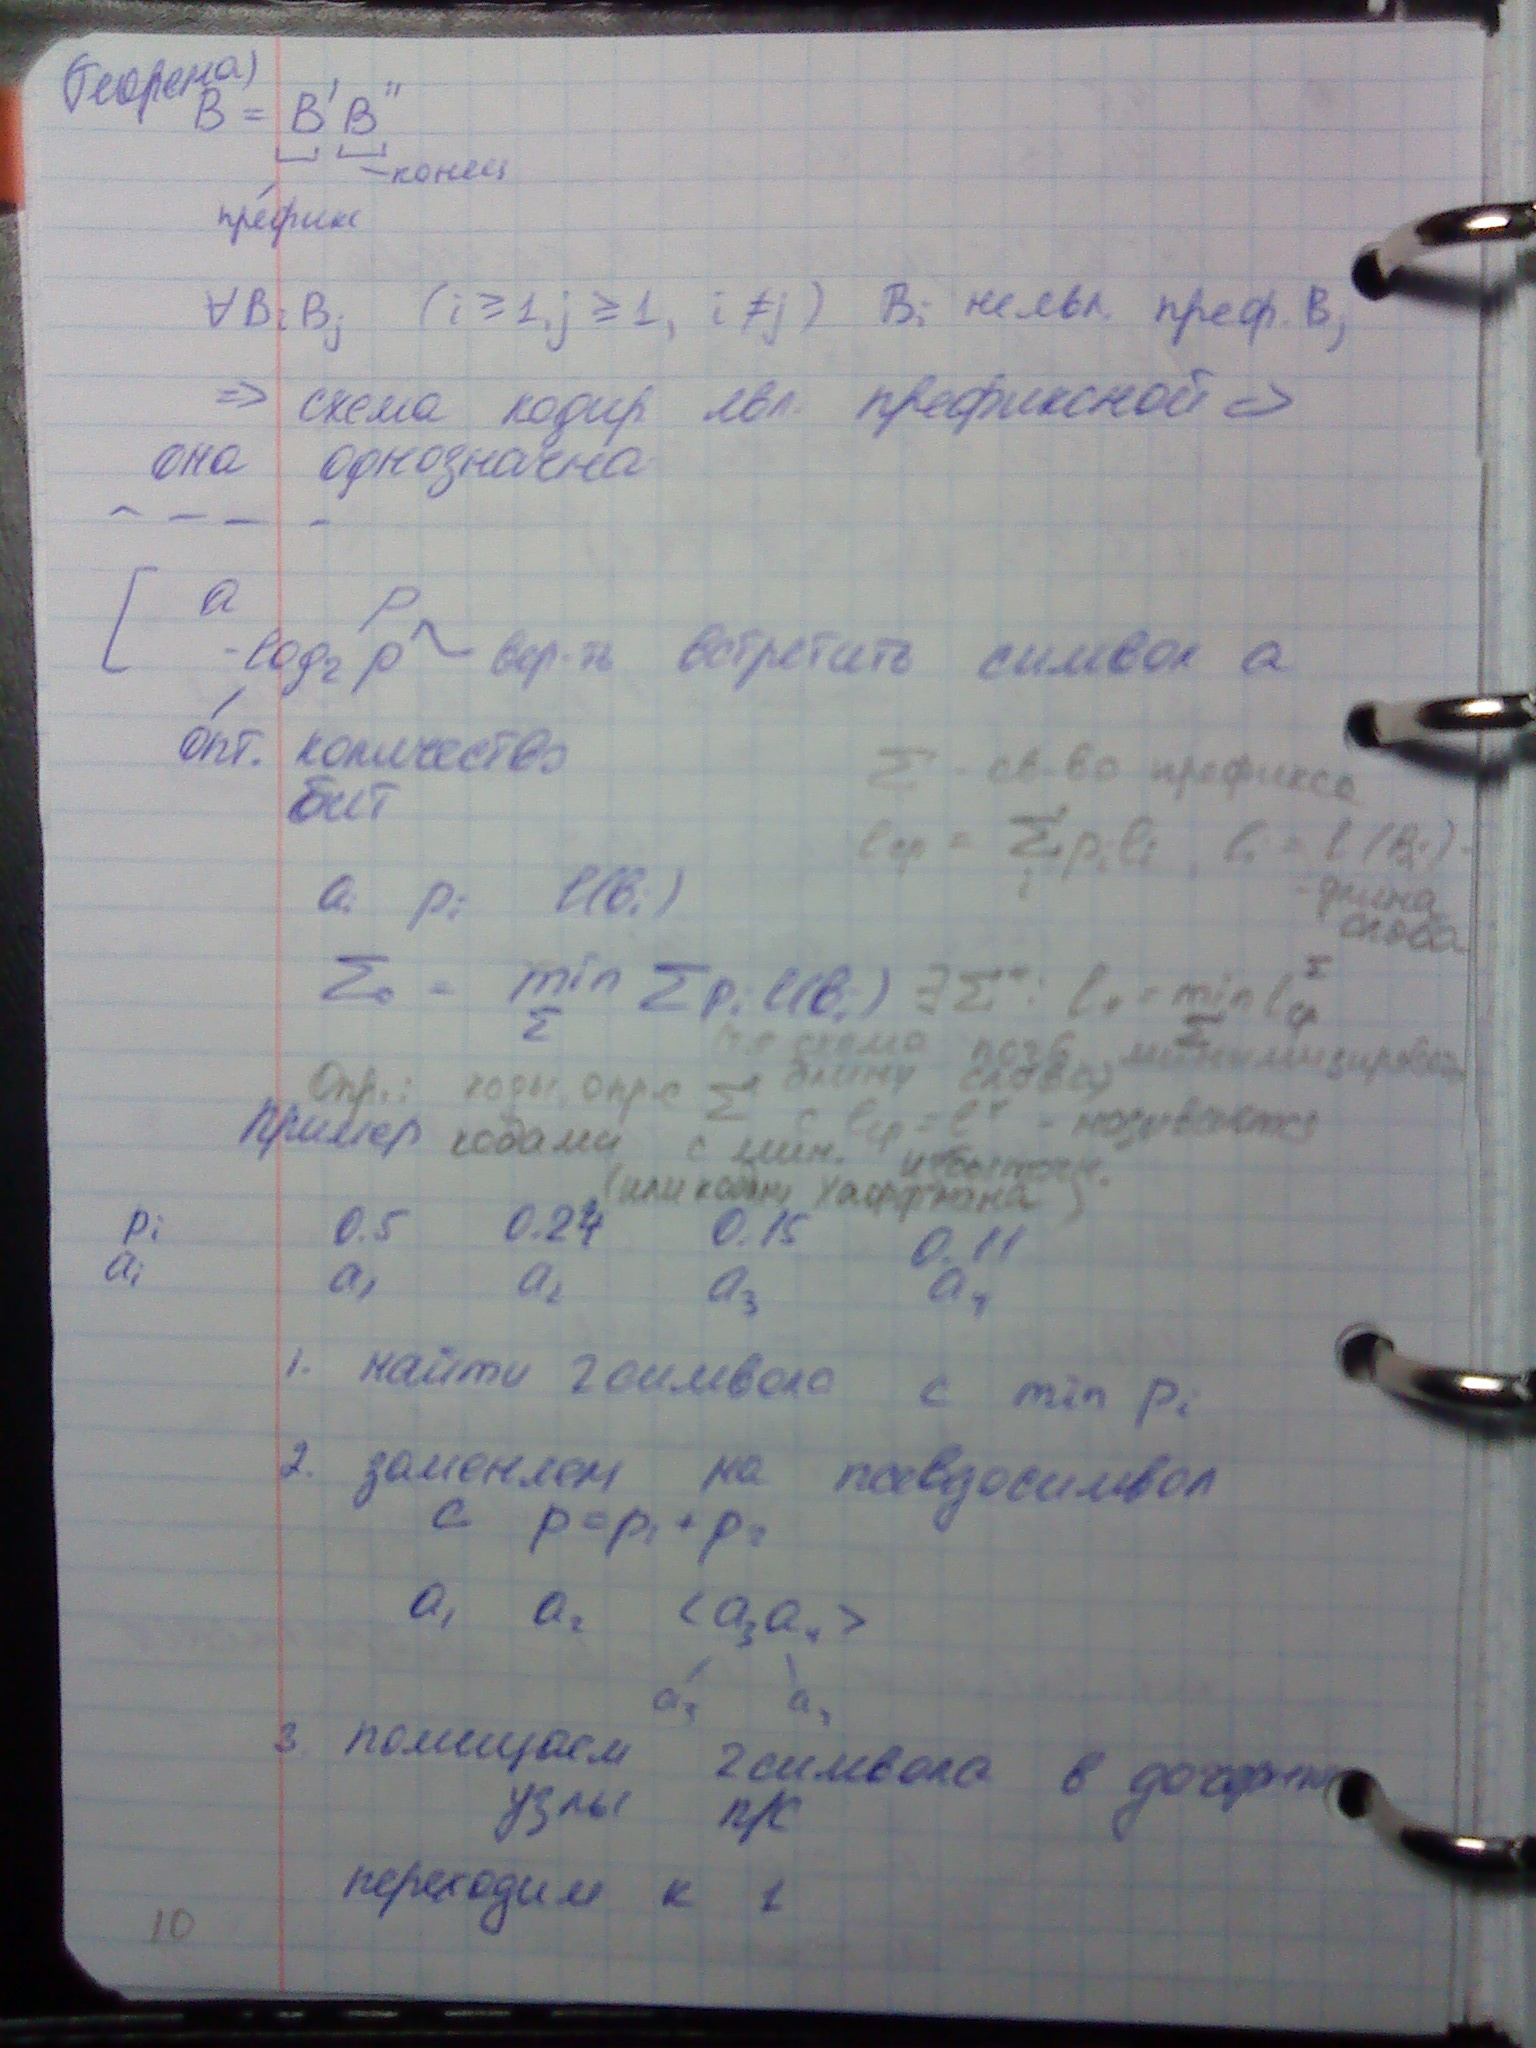 (Теорема)
B = B' B''
конец
префикс
∀ Bi Bj (i ≥ 1, j ≥ 1, i ≠ j) Bi не явл. преф. Bj
=> схема кодир явл. префиксной =>
она однозначна
a p
-log₂ p - вер-ть встретить символ a
опт. количество
бит
Σ - св-во префикса
lср = Σ pi li, li = l(Bi) -
i
- длина
слова
ai pi l(Bi)
Σ₀ = min Σ pi l(Bi) ∃ Σ*: l* = min lср Σ
Σ Σ
схема позв. минимизировать
длину слова)
Опр.: коды, опр. с Σ* с lср = l* - называются
Пример кодами с мин. избыточн.
(или кодами Хаффмана)
pi 0.5 0.24 0.15 0.11
ai a₁ a₂ a₃ a₄
1. найти 2 символа с min pi
2. заменяем на псевдосимвол
с p = p₁ + p₂
a₁ a₂ <a₃a₄>
a₃ a₄
3. помищаем 2 символа в дочерн
узлы п/с
переходим к 1
10